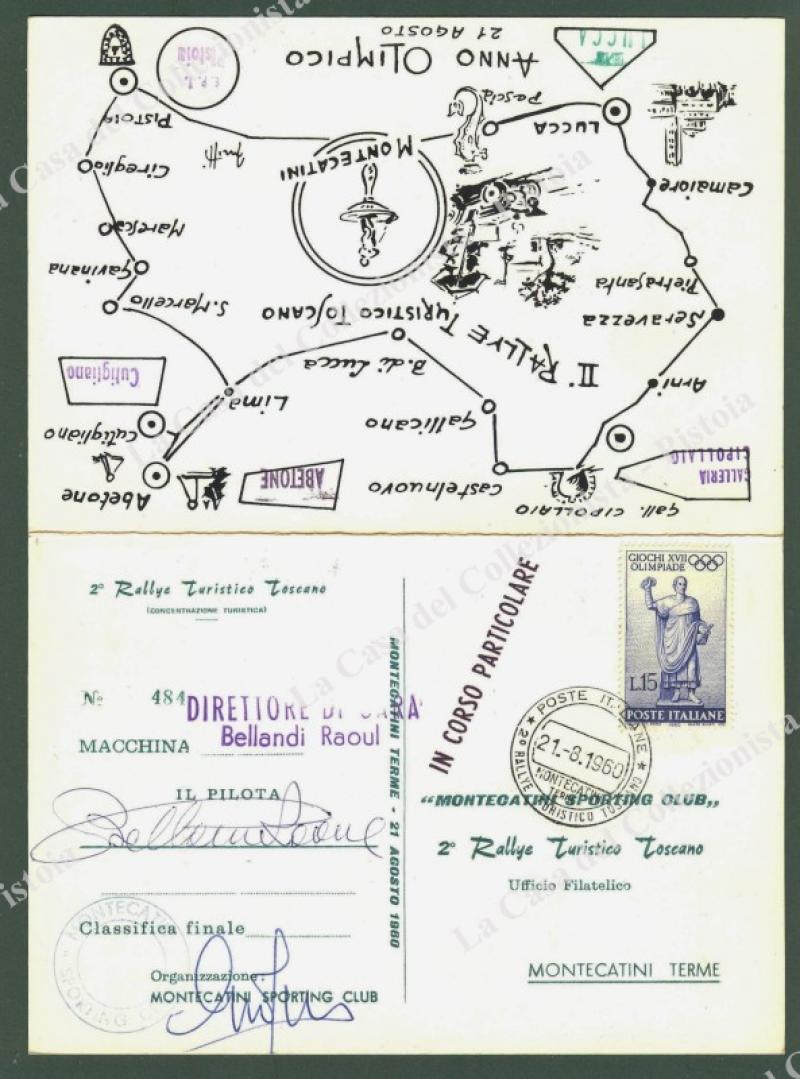 ANNO OLIMPICO
21 AGOSTO
LUCCA
E.P.T.
Pistoia
PISTOIA
Pescia
LUCCA
MONTECATINI
Cireglio
Camaiore
Maresca
Gavinana
Pietrasanta
S. Marcello
II° RALLYE TURISTICO TOSCANO
Seravezza
B. di Lucca
Cutigliano
Lima
Arni
Gallicano
Cutigliano
Abetone
ABETONE
Castelnuovo
GALLERIA
CIPOLLAIO
Gall. CIPOLLAIO
2° Rallye Turistico Toscano
(CONCENTRAZIONE TURISTICA)
N° 484
DIRETTORE DI GARA
MACCHINA Bellandi Raoul
IL PILOTA
Classifica finale
Organizzazione:
MONTECATINI SPORTING CLUB
MONTECATINI
SPORTING CLUB
MONTECATINI TERME - 21 AGOSTO 1960
IN CORSO PARTICOLARE
GIOCHI XVII
OLIMPIADE
L.15
POSTE ITALIANE
POSTE ITALIANE
21.-8.1960
MONTECATINI
TERME
2° RALLYE TURISTICO TOSCANO
"MONTECATINI SPORTING CLUB,,
2° Rallye Turistico Toscano
Ufficio Filatelico
MONTECATINI TERME
La Casa del Collezionista - Pistoia